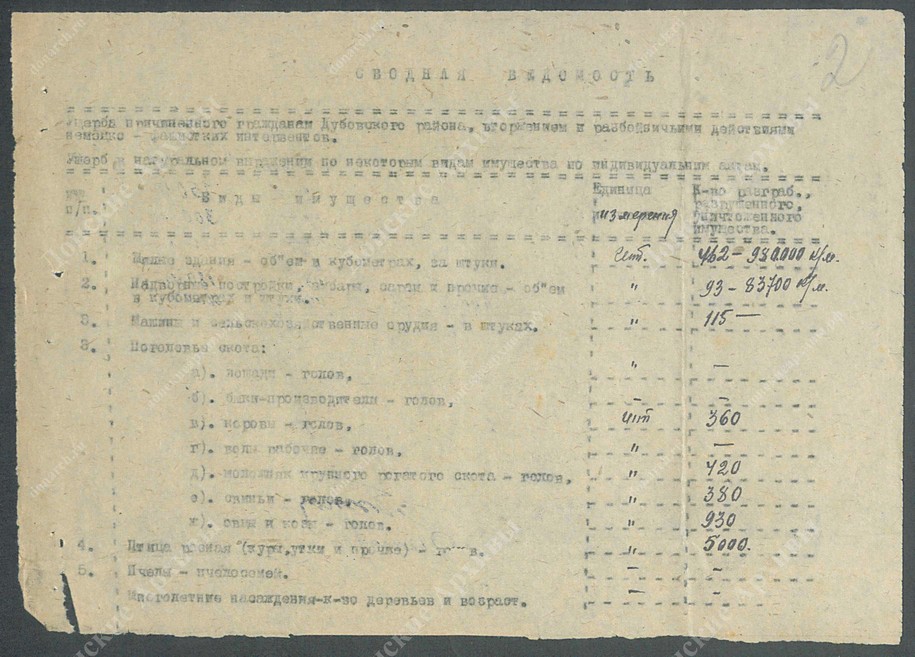 2
СВОДНАЯ ВЕДОМОСТЬ
Ущерба причиненного гражданам Дубовского района, вторжением и разбойничьими действиями
немецко - фашистких интервентов.
Ущерб в натуральном выражении по некоторым видам имущества по индивидуальным актам.
№№ п/п. Виды имущества Единица измерения К-во разграб., разрушенного, уничтоженного имущества.
1. Жилые здания - об"ем в кубометрах, за штуки. Шт. 462 - 980.000 к/м.
2. Надворные постройки, амбары, сараи и прочие - об"ем " 93 - 83700 к/м.
в кубометрах и штуки.
3. Машины и сельскохозяйственные орудия - в штуках. " 115 -
3. Поголовье скота:
а). лошади - голов, " -
б). быки-производители - голов, - -
в). коровы - голов, шт 360
г). волы рабочие - голов, " -
д). молодняк крупного рогатого скота - голов, " 420
е). свиньи - голов, " 380
ж). овцы и козы - голов. " 930
4. Птица разная (куры, утки и прочие) - " 5000.
5. Пчелы - пчелосемей. - -
Многолетние насаждения-к-во деревьев и возраст. - -